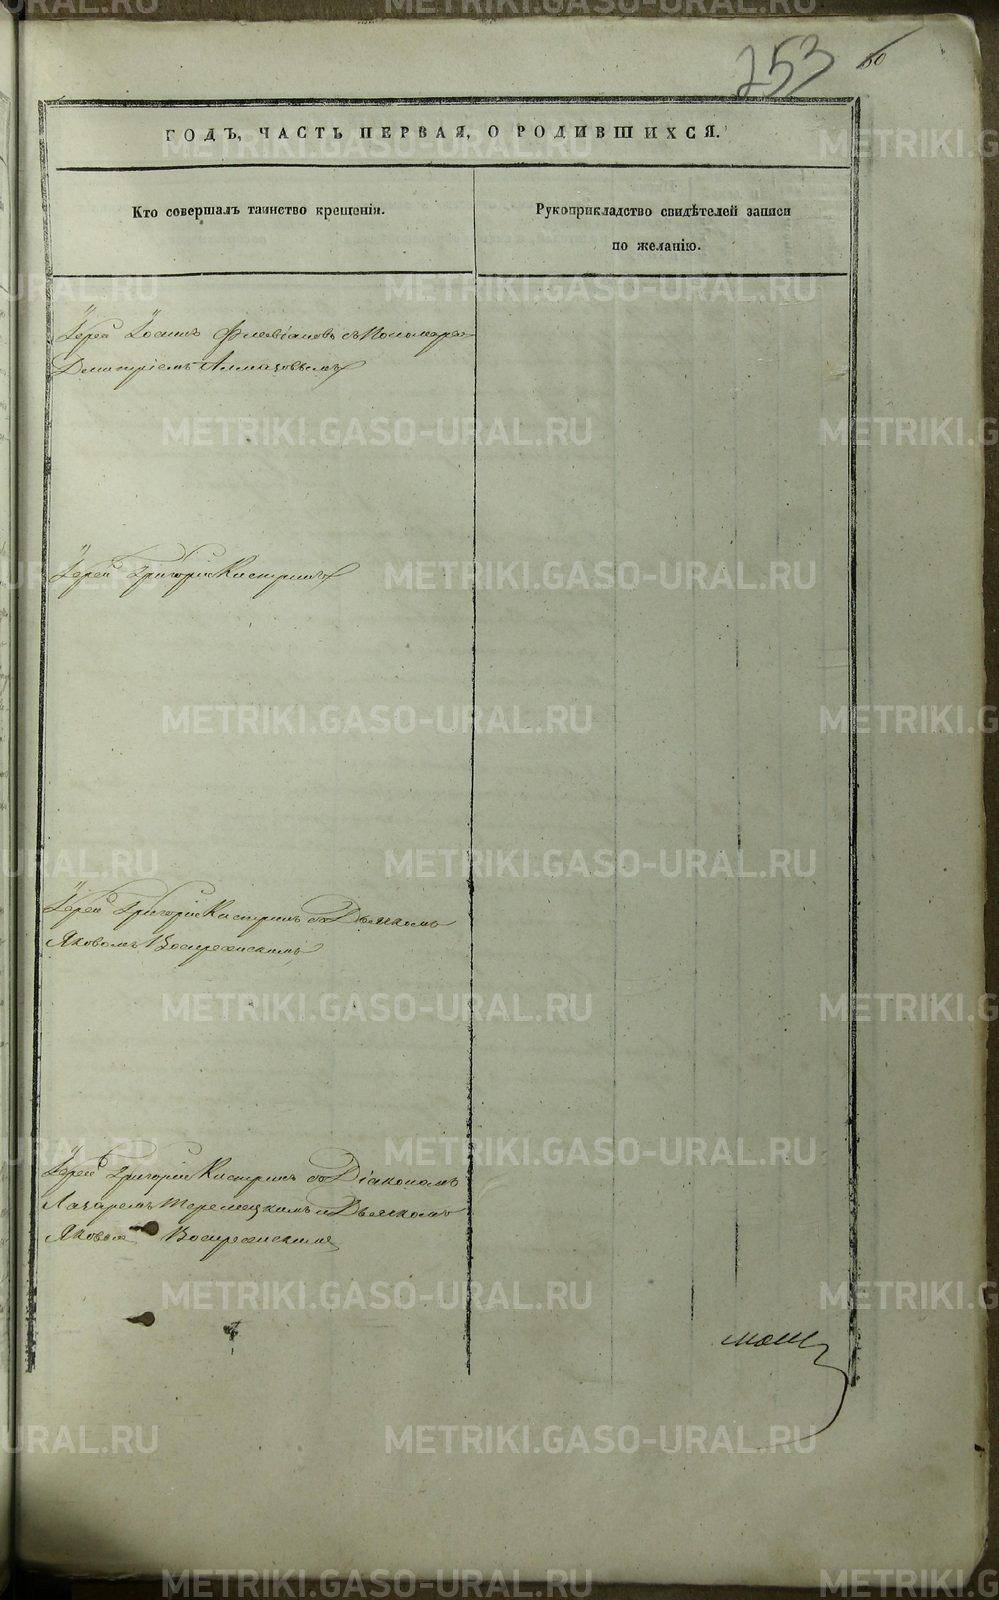 253 60
ГОДЪ, ЧАСТЬ ПЕРВАЯ, О РОДИВШИХСЯ.
Кто совершалъ таинство крещенія.
Рукоприкладство свидѣтелей записи
по желанію.
Іерей Іоаннъ Флавіановъ съ Пономаре-
Димитріемъ Алмазовымъ
Іерей Григорій Кастринъ
Іерей Григорій Кастринъ съ Дьячкомъ
Яковомъ Воскресенскимъ
Іерей Григорій Кастринъ съ Діакономъ
Лазаремъ и Дьячкомъ
Яковом Воскресенскимъ
METRIKI.GASO-URAL.RU